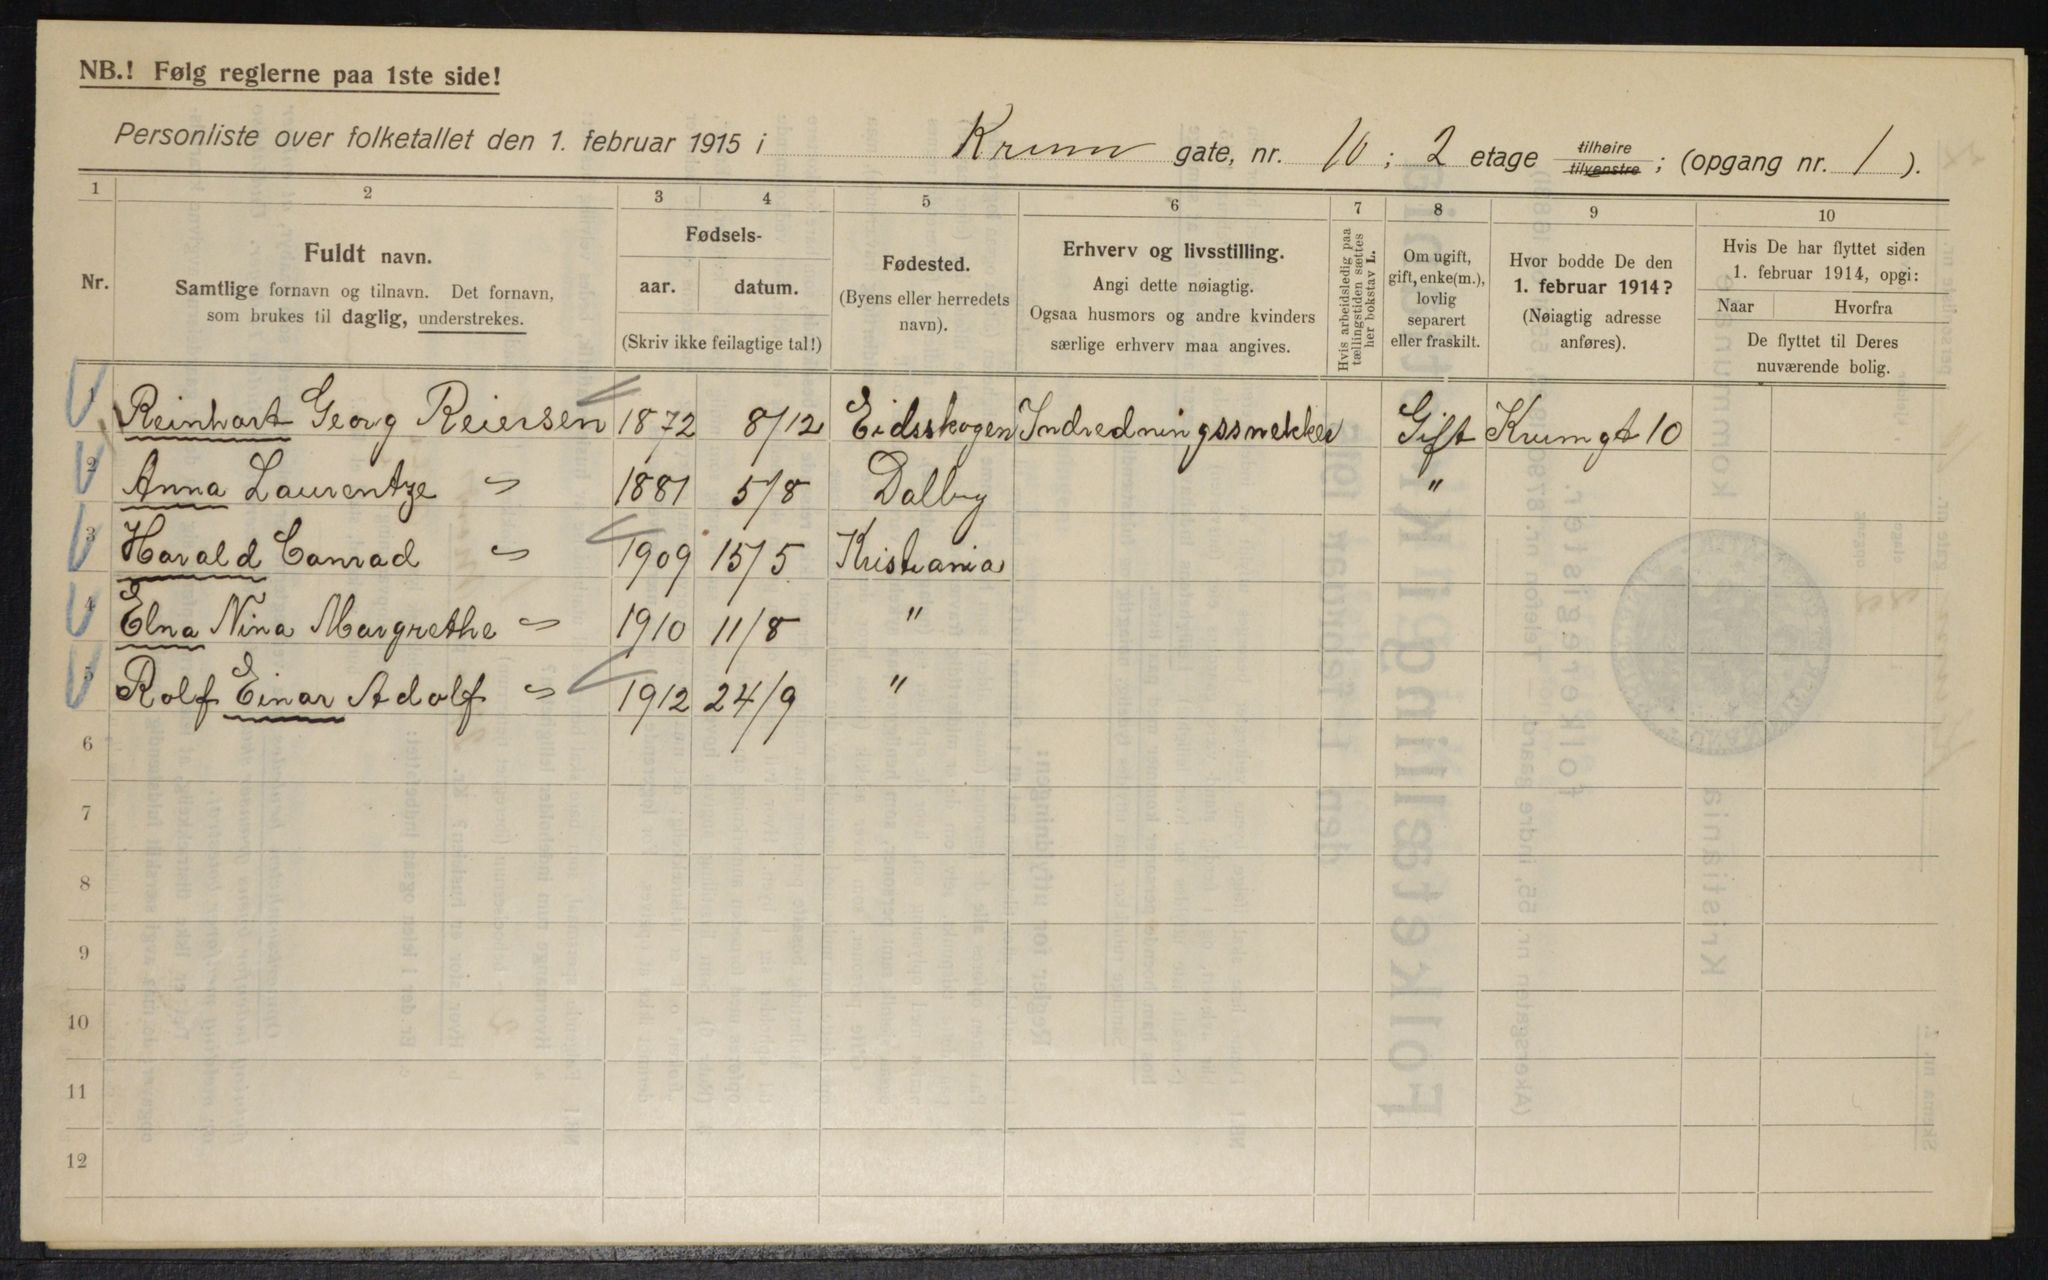 NB.! Følg reglerne paa 1ste side!
Personliste over folketallet den 1. februar 1915 i Krum gate, nr. 10 ; 2 etage tilhøire tilvenstre ; (opgang nr. 1 ).
1 2 3 4 5 6 7 8 9 10
Nr.
Fuldt navn.
Samtlige fornavn og tilnavn. Det fornavn,
som brukes til daglig, understrekes.
Fødsels-
aar. datum.
(Skriv ikke feilagtige tal!)
Fødested.
(Byens eller herredets
navn).
Erhverv og livsstilling.
Angi dette nøiagtig.
Ogsaa husmors og andre kvinders
særlige erhverv maa angives.
Hvis arbeidsledig paa
tællingstiden sættes
her bokstav L.
Om ugift,
gift, enke(m.),
lovlig
separert
eller fraskilt.
Hvor bodde De den
1. februar 1914?
(Nøiagtig adresse
anføres).
Hvis De har flyttet siden
1. februar 1914, opgi:
Naar Hvorfra
De flyttet til Deres
nuværende bolig.
1 Reinhart Georg Reiersen 1872 8/12 Eidsskogen Indredningssnekker Gift Krumgt 10
2 Anna Laurentze " 1881 5/8 Dalby "
3 Harald Conrad " 1909 15/5 Kristiania
4 Elna Nina Margrethe " 1910 11/8 "
5 Rolf Einar Adolf " 1912 24/9 "
6
7
8
9
10
11
12